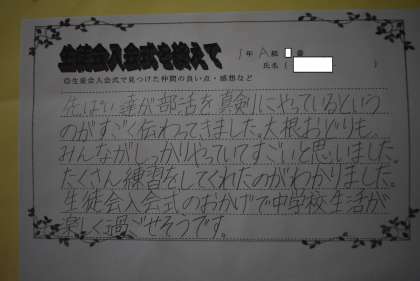 生徒会入会式を終えて
1年A組 番
◎生徒会入会式で見つけた仲間の良い点・感想など
氏名( )
先ぱい達が部活を真剣にやっているという
のがすごく伝わってきました。大根おどりも、
みんながしっかりやっていてすごいと思いました。
たくさん練習をしてくれたのがわかりました。
生徒会入会式のおかげで中学校生活が
楽しく過ごせそうです。